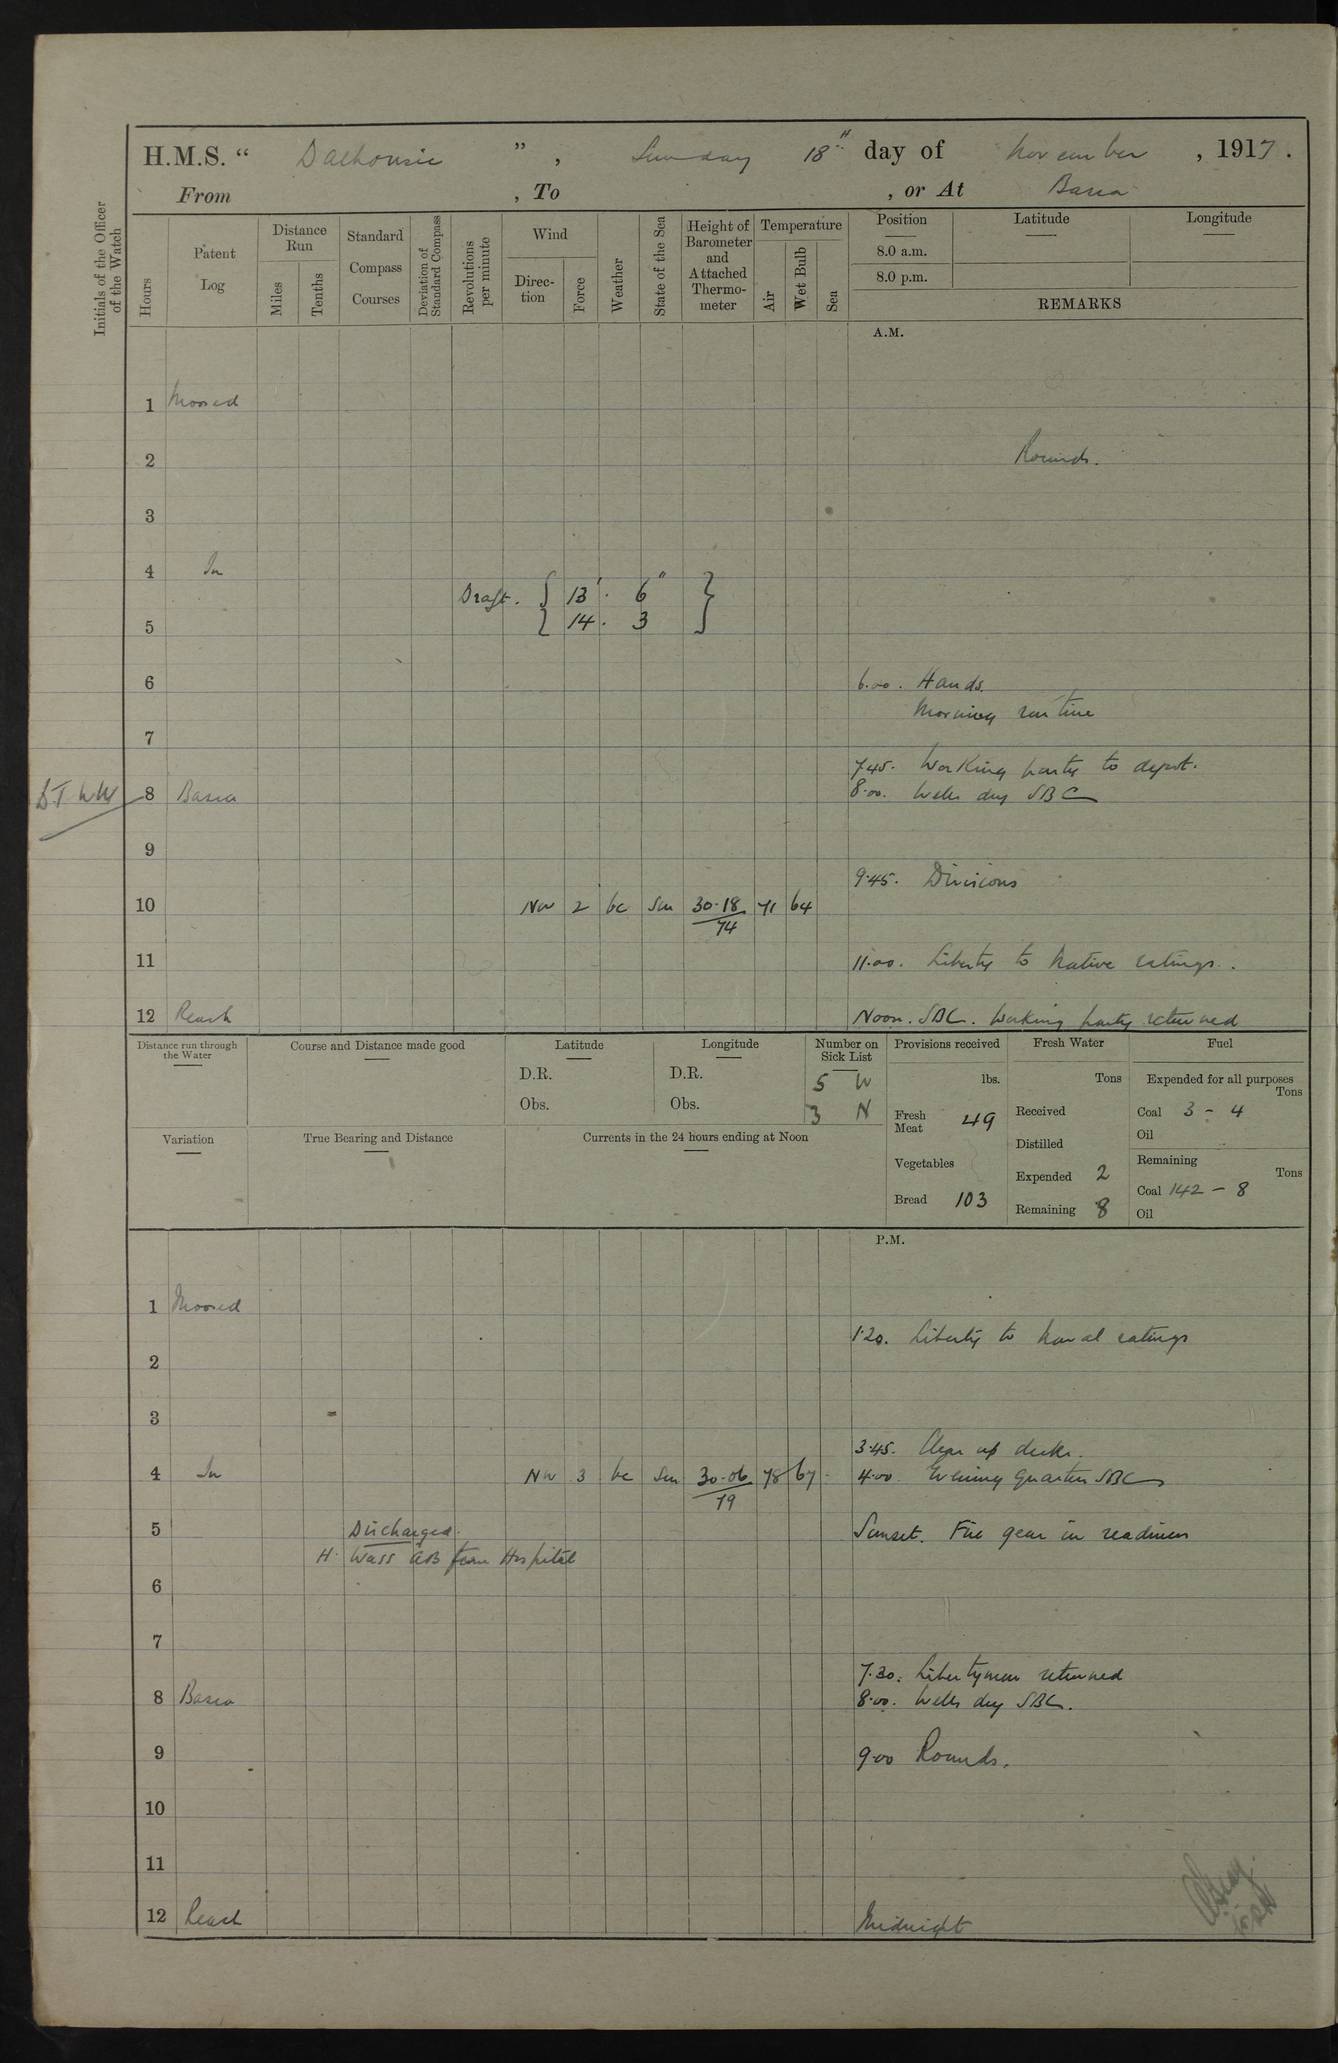 H.M.S. “ Dalhousie ” , Sunday 18th day of November , 1917 .
From , To , or At Basra
Initials of the Officer of the Watch
Hours
Patent Log
Distance Run
Miles
Tenths
Standard Compass Courses
Deviation of Standard Compass
Revolutions per minute
Wind
Direction
Force
Weather
State of the Sea
Height of Barometer and Attached Thermometer
Temperature
Air
Wet Bulb
Sea
Position
Latitude
Longitude
8.0 a.m.
8.0 p.m.
REMARKS
A.M.
1 Moored
2 Rounds.
3
4 In
Draft. { 13' . 6" }
5 14 . 3
6 6.00. Hands.
Morning routine
7
7.45. Working party to depot.
8 Basra 8.00. Wells dry SBC
9
9.45. Divisions
10 NW 2 bc Sm 30.18 71 64
74
11 11.00. Liberty to Native ratings.
12 Reach Noon. SBC. Working party returned
Distance run through the Water
Course and Distance made good
Latitude
Longitude
Number on Sick List
Provisions received
Fresh Water
Fuel
D.R. D.R. 5 W
Obs. Obs. 3 N
lbs.
Fresh Meat 49
Vegetables
Bread 103
Tons
Received
Distilled
Expended 2
Remaining 8
Expended for all purposes
Tons
Coal 3 - 4
Oil
Remaining
Tons
Coal 142 - 8
Oil
Variation
True Bearing and Distance
Currents in the 24 hours ending at Noon
P.M.
1 Moored
1.20. Liberty to Naval ratings
2
3
3.45. Clear up decks.
4 In NW 3 bc Sm 30.06 78 67 4.00 Evening Quarters SBC
79
5 Discharged. Sunset. Fire gear in readiness
H. Wass AB from Hospital
6
7
7.30. Libertymen returned
8 Basra 8.00. Wells dry SBC.
9 9.00 Rounds.
10
11
12 Reach Midnight